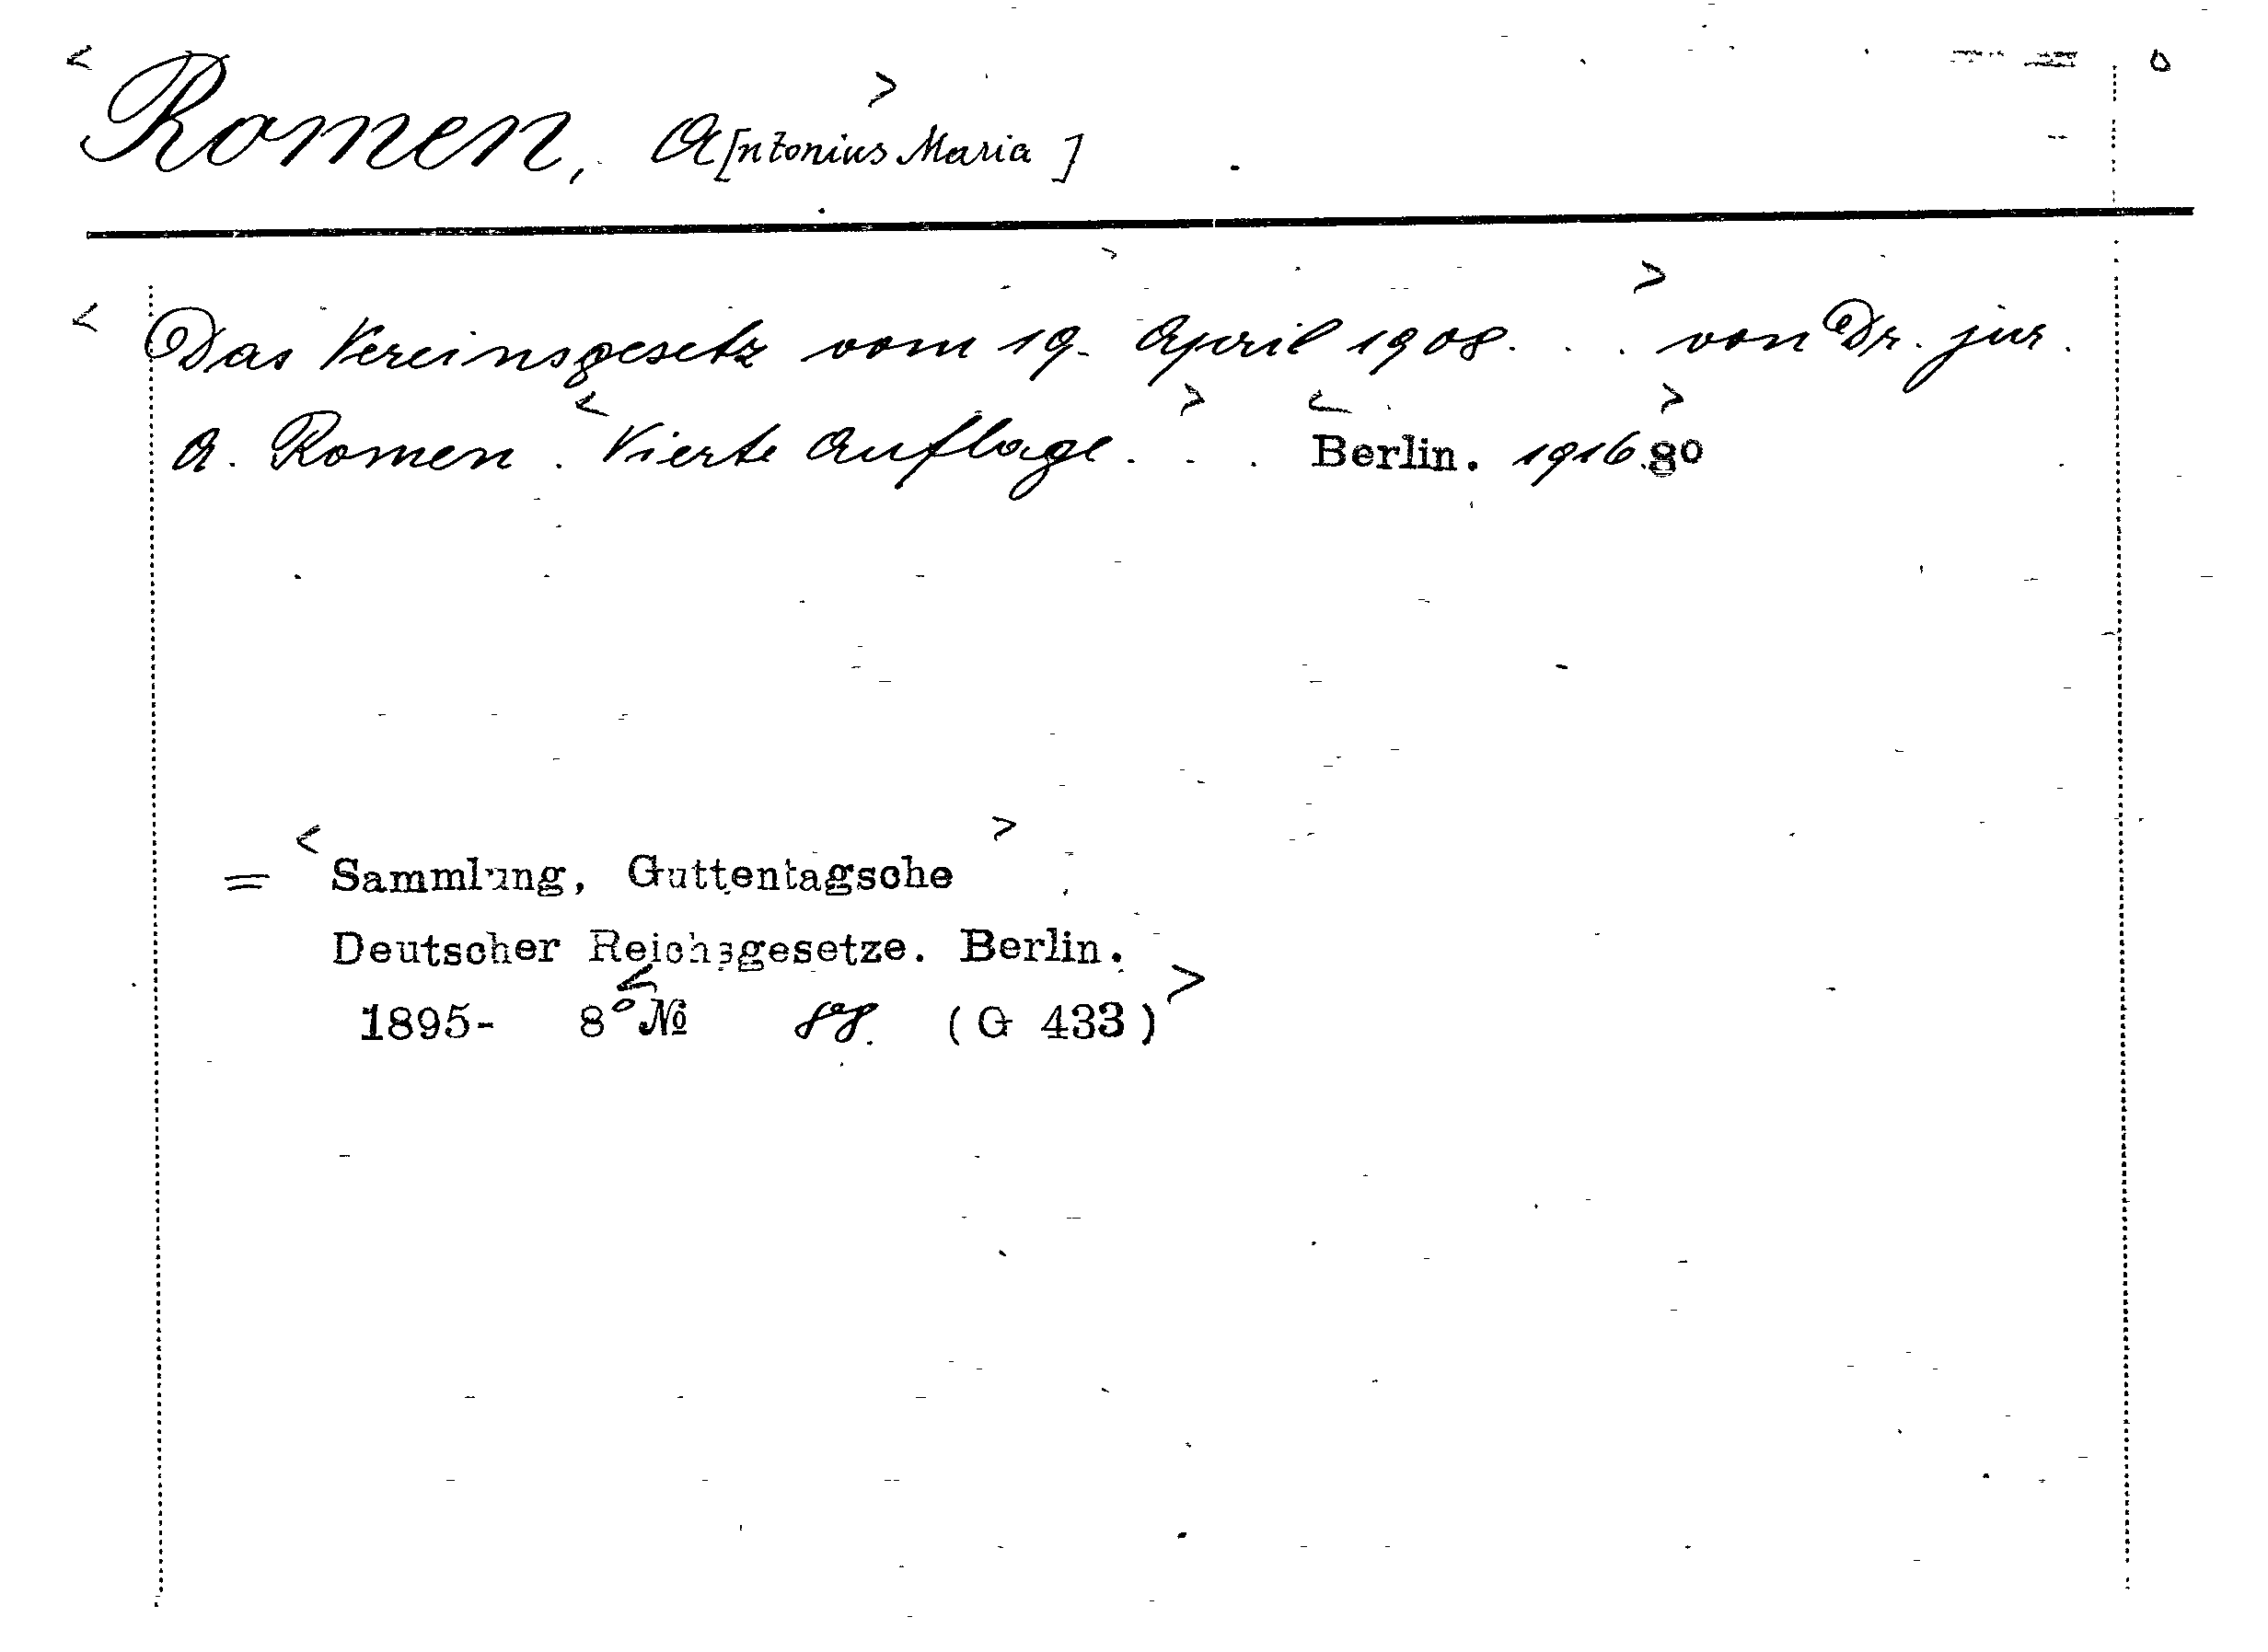 Romen, A[ntonius Maria]
Das Vereinsgesetz vom 19. April 1908. . . von Dr. jur.
A. Romen. Vierte Auflage. . . Berlin. 1916. 8º
= Sammlung, Guttentagsche
Deutscher Reichsgesetze. Berlin.
1895- 8º № 88. (G 433)